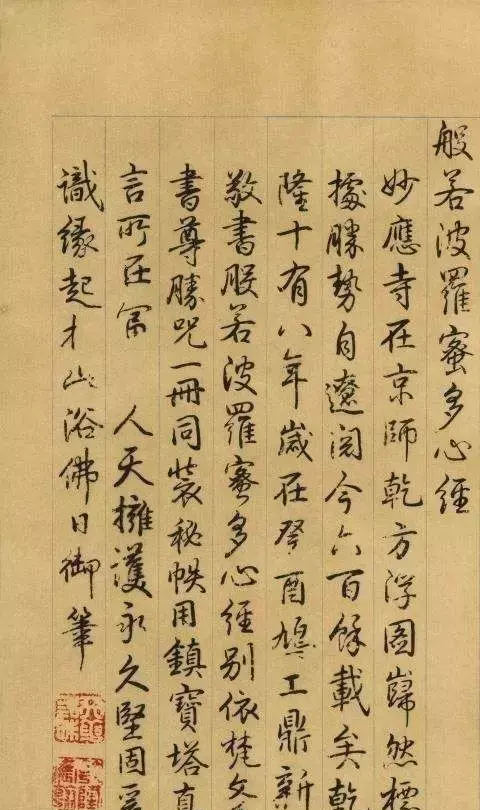 般若波羅蜜多心經
妙應寺在京師乾方浮圖巋然標
據勝勢自遼閱今六百餘載矣乾
隆十有八年歲在癸酉鳩工鼎新
敬書般若波羅蜜多心經別依梵文
書尊勝呪一冊同裝秘帙用鎮寶塔真
言所在冀人天擁護永久堅固爰
識緣起於此浴佛日御筆